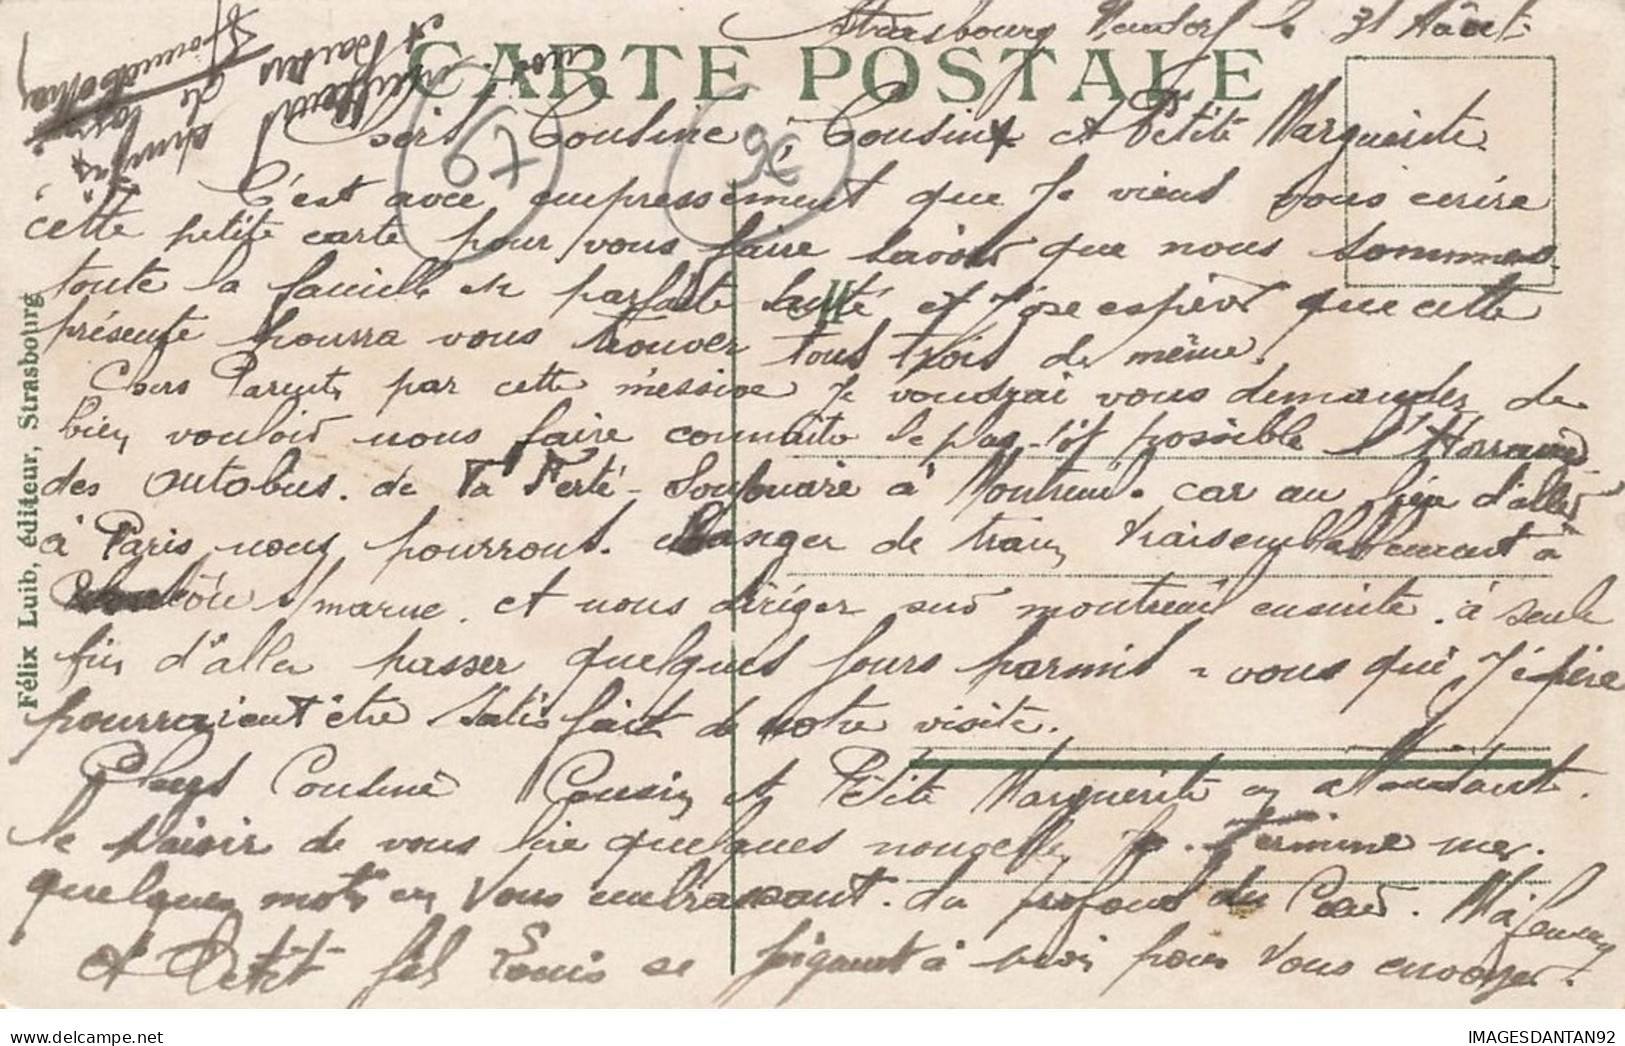 Strasbourg Neudorf le 31 Août
CARTE POSTALE
Cousine, Cousin et Petite Marguerite
C'est avec empressement que Je viens vous ecrire
cette petite carte pour vous faire savoir que nous sommes
toute la famille en parfaite santé et J'ose espérer que cette
présente pourra vous trouver tous trois de même.
Chers Parents par cetteméssive Je voudrai vous demander de
bien vouloir nous faire connaitre le plus-tôt possible l'Horraire
des autobus. de La Ferté-Soujouaire à Montreuil. car au lieu d'aller
à Paris nous pourrons. changer de train Vraisemblablement à
s/marne. et nous diriger sur montreuil ensuite. à seule
fin d'aller passer quelques Jours parmis-vous qui J'éspère
pourraient être satisfait de notre visite.
Cousine Cousin et Petite Marguerite en attendant.
le plaisir de vous lire quelques nouvelles Je. Termine mes.
quelques mots en Vous embrassant. du profond du Coeur. Ma femme
et Petit fils Louis se joignent à moi pour Vous envoyer.
nos meilleurs
et baisers
de
Félix Luib, éditeur, Strasbourg
67
96
II
IMAGESDANTAN92
delcampe.net